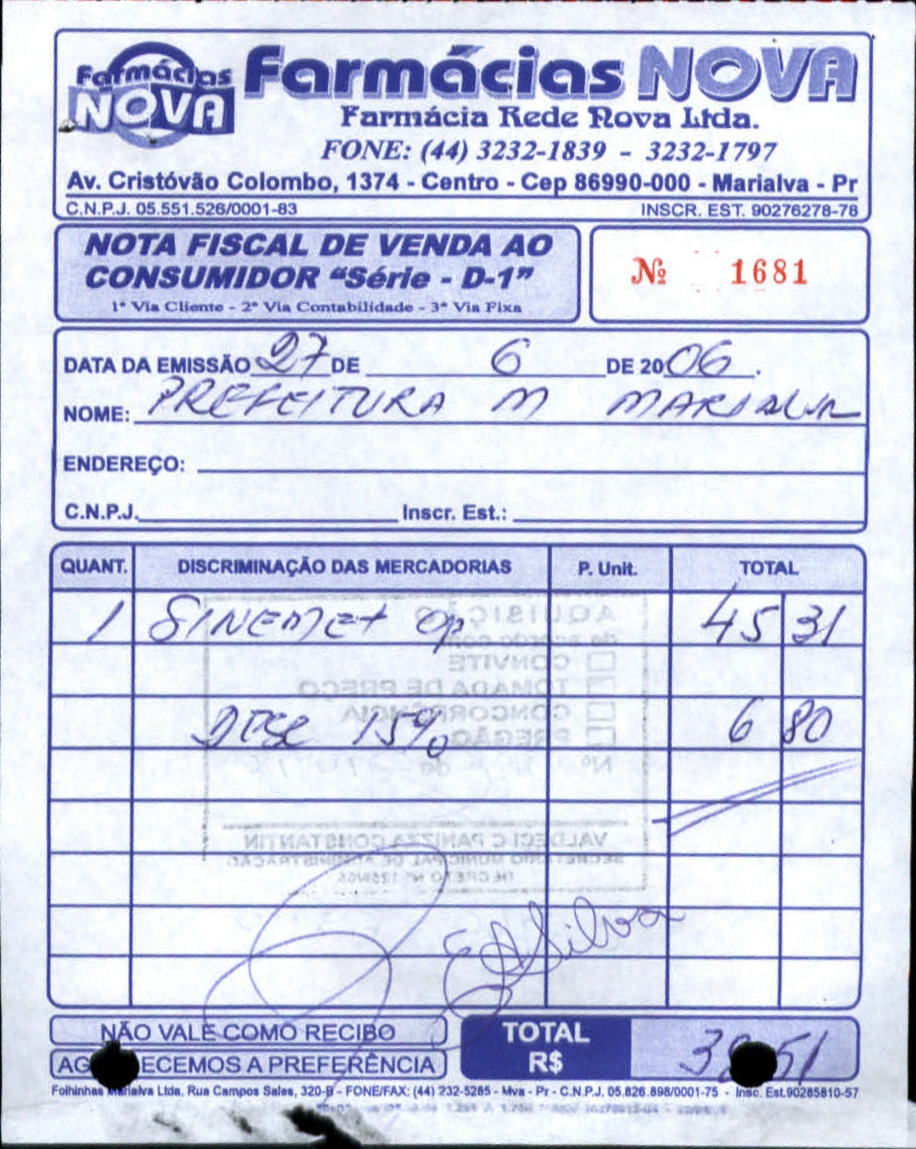 Farmácias NOVA
Farmácias NOVA
Farmácia Rede Nova Ltda.
FONE: (44) 3232-1839 - 3232-1797
Av. Cristóvão Colombo, 1374 - Centro - Cep 86990-000 - Marialva - Pr
C.N.P.J. 05.551.526/0001-83 INSCR. EST. 90276278-78
NOTA FISCAL DE VENDA AO
CONSUMIDOR "Série - D-1"
1ª Via Cliente - 2ª Via Contabilidade - 3ª Via Fixa
Nº 1681
DATA DA EMISSÃO 27 DE 6 DE 2006.
NOME: PREFEITURA M MARIALVA
ENDEREÇO:
C.N.P.J. Inscr. Est.:
QUANT. DISCRIMINAÇÃO DAS MERCADORIAS P. Unit. TOTAL
1 SINEMET cp 45 31
AQUISIÇÃO
de acordo com
CONVITE
TOMADA DE PREÇO
CONCORRÊNCIA
DESC 15% 6 80
PREGÃO
Nº de
VALDECI C PANIZZA CONSTANTIN
SECRETÁRIO MUNICIPAL DE ADMINISTRAÇÃO
DECRETO Nº
Silva
NÃO VALE COMO RECIBO
AG ECEMOS A PREFERÊNCIA
TOTAL
R$ 38 51
Folhinhas Marialva Ltda, Rua Campos Sales, 320-B - FONE/FAX: (44) 232-5285 - Mva - Pr - C.N.P.J. 05.826.898/0001-75 - Insc. Est.90285810-57